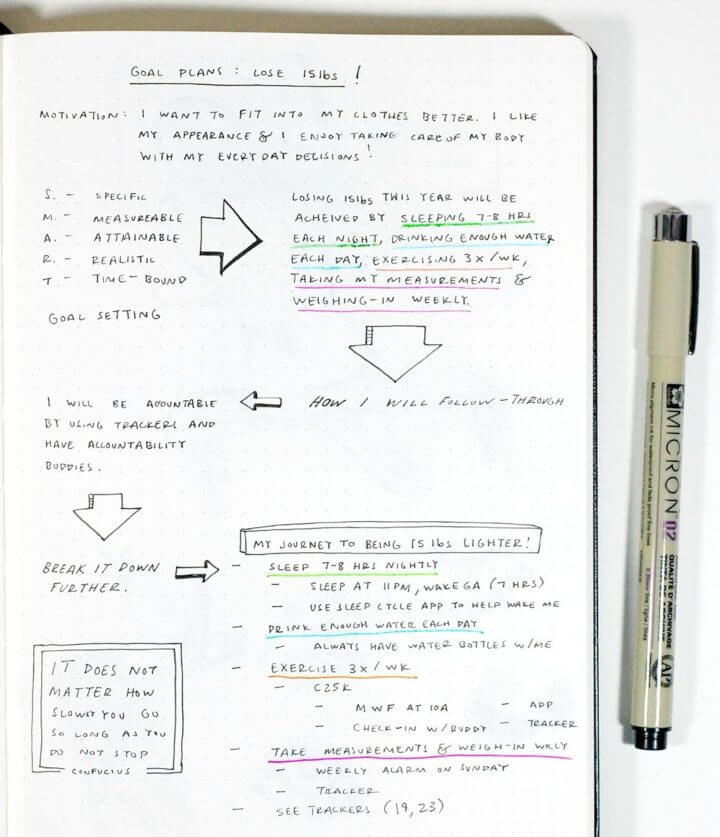 GOAL PLANS: LOSE 15lbs!
MOTIVATION: I WANT TO FIT INTO MY CLOTHES BETTER. I LIKE
MY APPEARANCE & I ENJOY TAKING CARE OF MY BODY
WITH MY EVERYDAY DECISIONS!
S. - SPECIFIC
M. - MEASUREABLE
A. - ATTAINABLE
R. - REALISTIC
T. - TIME-BOUND
GOAL SETTING
LOSING 15lbs THIS YEAR WILL BE
ACHEIVED BY SLEEPING 7-8 HRS
EACH NIGHT, DRINKING ENOUGH WATER
EACH DAY, EXERCISING 3x/WK,
TAKING MY MEASUREMENTS &
WEIGHING-IN WEEKLY.
HOW I WILL FOLLOW-THROUGH
I WILL BE ACOUNTABLE
BY USING TRACKERS AND
HAVE ACCOUNTABILITY
BUDDIES.
BREAK IT DOWN
FURTHER.
MY JOURNEY TO BEING 15 lbs LIGHTER!
- SLEEP 7-8 HRS NIGHTLY
- SLEEP AT 11PM, WAKE 6A (7 HRS)
- USE SLEEP CYCLE APP TO HELP WAKE ME
- DRINK ENOUGH WATER EACH DAY
- ALWAYS HAVE WATER BOTTLES W/ME
- EXERCISE 3x/WK
- C25K
- MWF AT 10A - APP
- CHECK-IN W/BUDDY - TRACKER
- TAKE MEASUREMENTS & WEIGH-IN WKLY
- WEEKLY ALARM ON SUNDAY
- TRACKER
- SEE TRACKERS (19, 23)
IT DOES NOT
MATTER HOW
SLOWLY YOU GO
SO LONG AS YOU
DO NOT STOP
CONFUCIUS
MICRON 02
QUALITÉ D'ARCHIVAGE